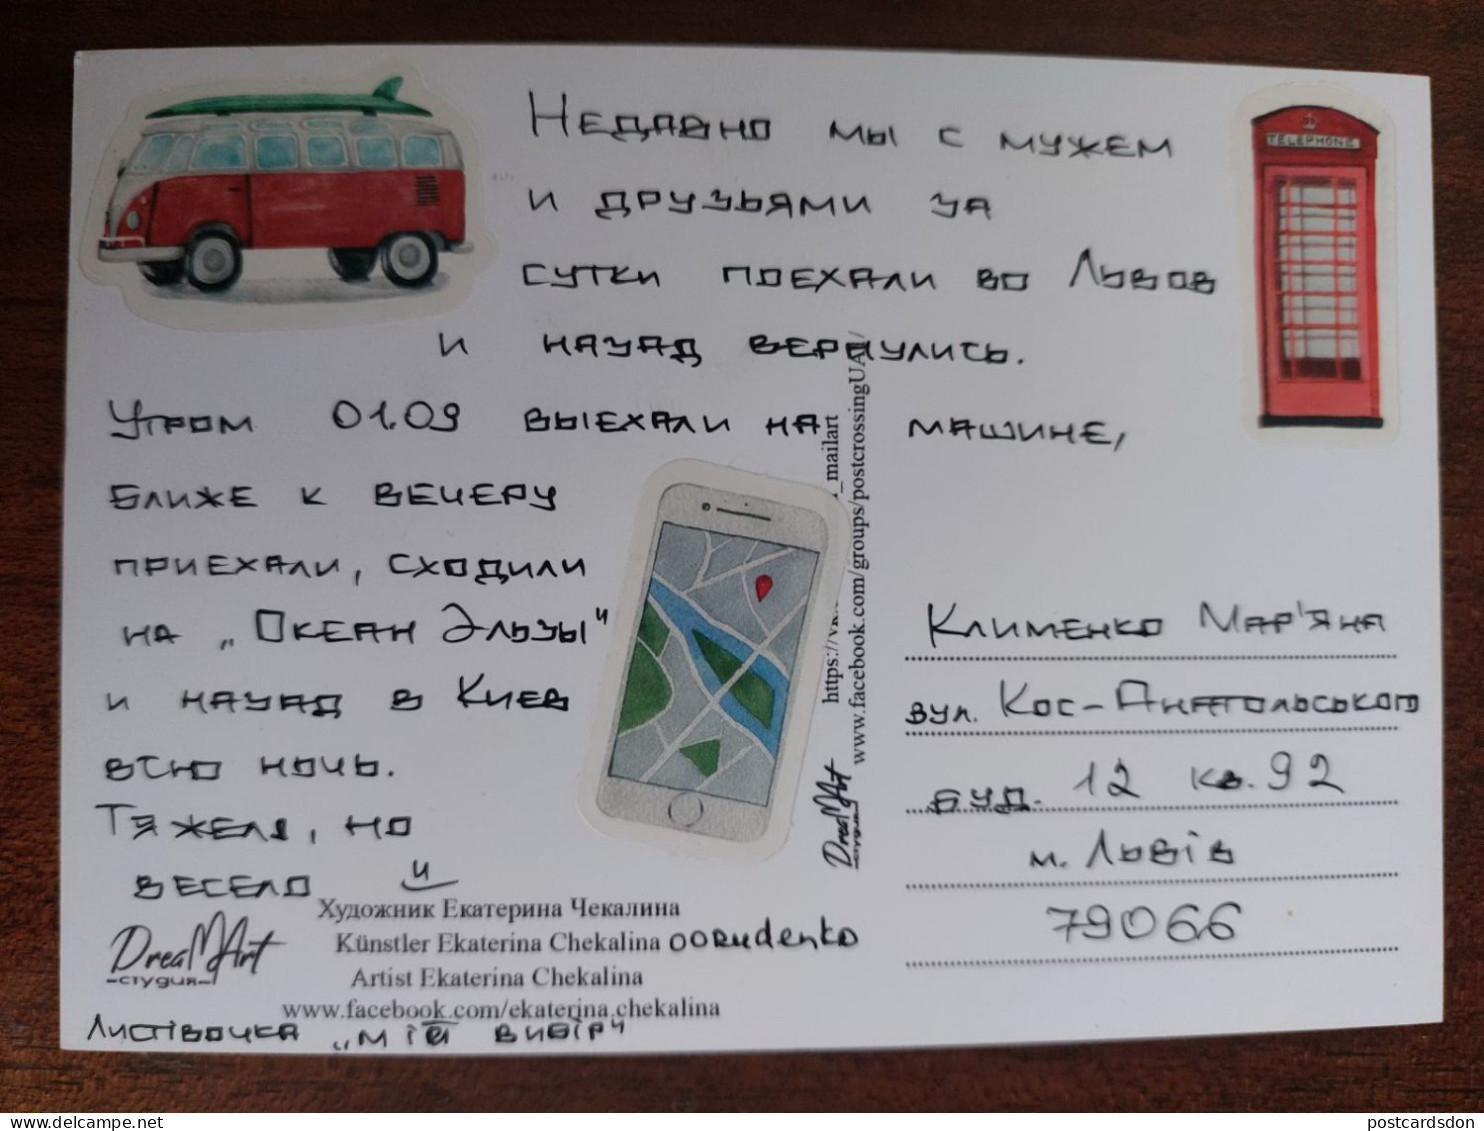 TELEPHONE
Недавно мы с мужем
и друзьями за
сутки поехали во Львов
и назад вернулись.
Утром 01.09 выехали на машине,
ближе к вечеру
приехали, сходили
на „Океан Эльзы"
и назад в Киев
всю ночь.
Тяжело, но
весело
Художник Екатерина Чекалина
Künstler Ekaterina Chekalina oorudenko
Artist Ekaterina Chekalina
www.facebook.com/ekaterina.chekalina
DreaMArt
студия
Листівочка „мій вибір"
_mailart
https://vk.
www.facebook.com/groups/postcrossingUA/
DreaMArt
студия
Клименко Мар'яна
вул. Кос-Анатольського
буд. 12 кв. 92
м. Львів
79066
www.delcampe.net
postcardsdon